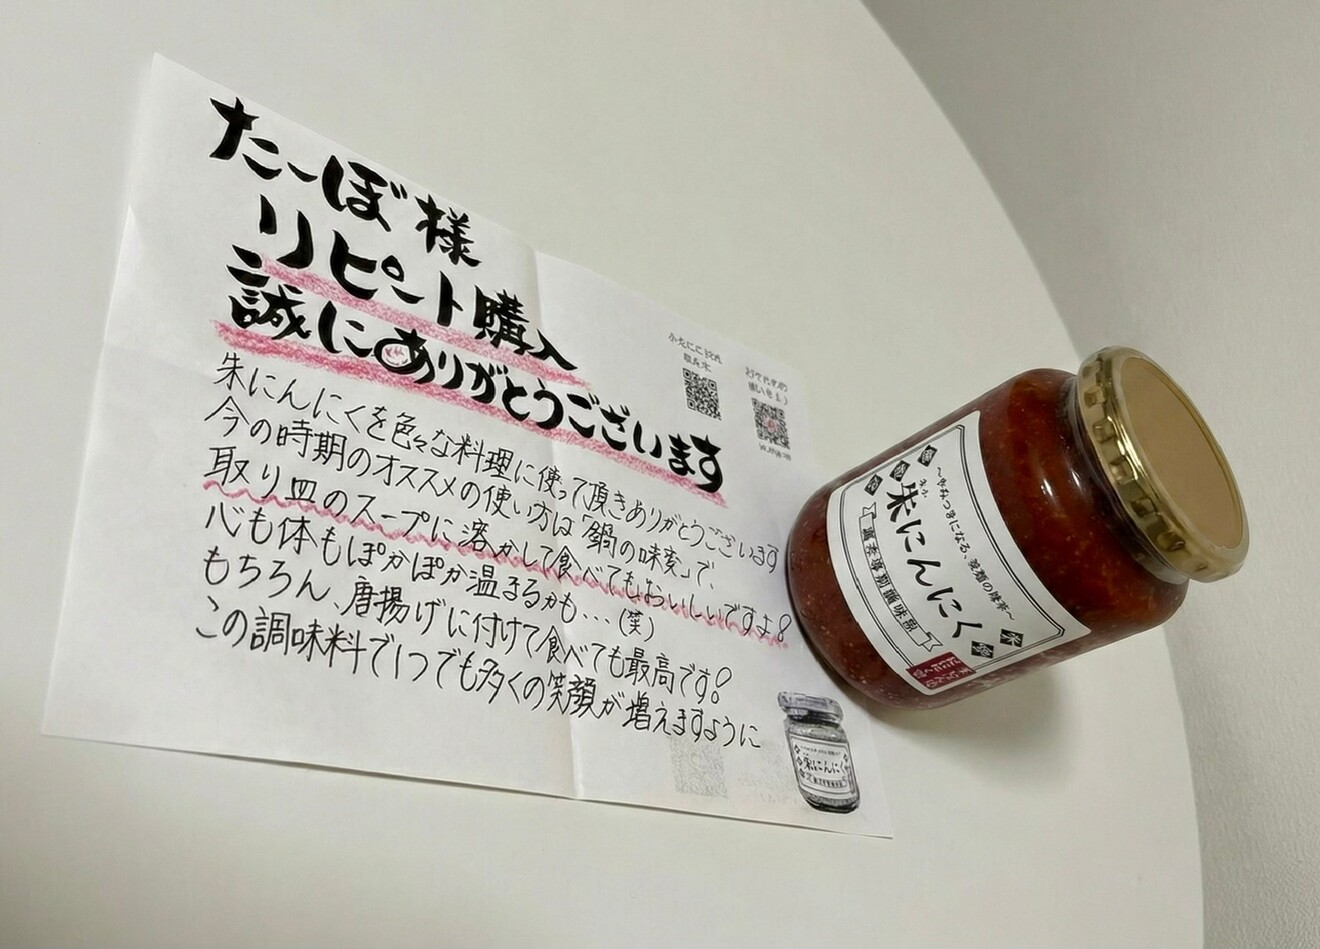 たーぼ様
リピート購入
誠にありがとうございます
朱にんにくを色々な料理に使って頂きありがとうございます
今の時期のオススメの使い方は「鍋の味変」で、
取り皿のスープに溶かして食べてもおいしいですよ!
心も体もぽかぽか温まるかも…(笑)
もちろん、唐揚げに付けて食べても最高です!
この調味料で1つでも多くの笑顔が増えますように
朱にんにく
朱にんにく